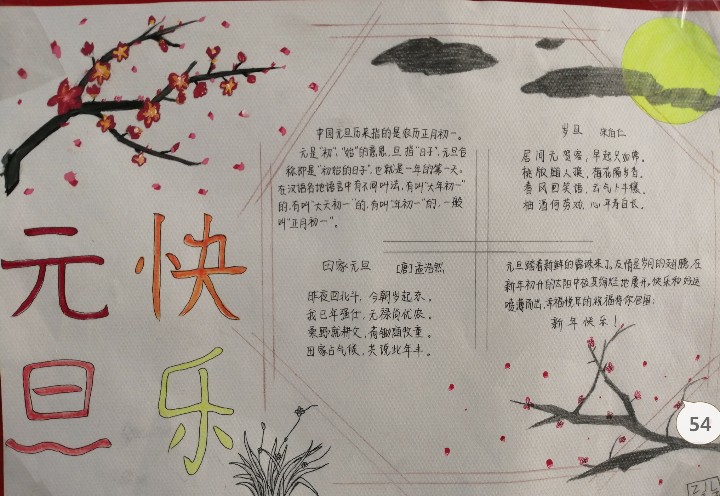 元旦
快乐
中国元旦历来指的是农历正月初一。
元是"初"、"始"的意思,旦指"日子",元旦合
称即是"初始的日子",也就是一年的第一天。
在汉语各地语言中有不同叫法,有叫"大年初一"
的,有叫"大天初一"的,有叫"年初一"的,一般
叫"正月初一"。
岁旦 宋伯仁
居间无贺客,早起只如常。
桃版随人换,梅花隔岁香。
春风回笑语,云气卜丰穰。
柏酒何劳劝,心平寿自长。
田家元旦 [唐]孟浩然
昨夜回北斗,今朝岁起东。
我已年强仕,无禄尚忧农。
桑野就耕父,荷锄随牧童。
田家占气候,共说此年丰。
元旦踏着新鲜的露珠来了。友情是岁月的翅膀,在
新年初升的太阳中
地展开,快乐和好运
喷薄而出,幸福悦耳的祝福将你包围:
新年快乐!
54
ZJL